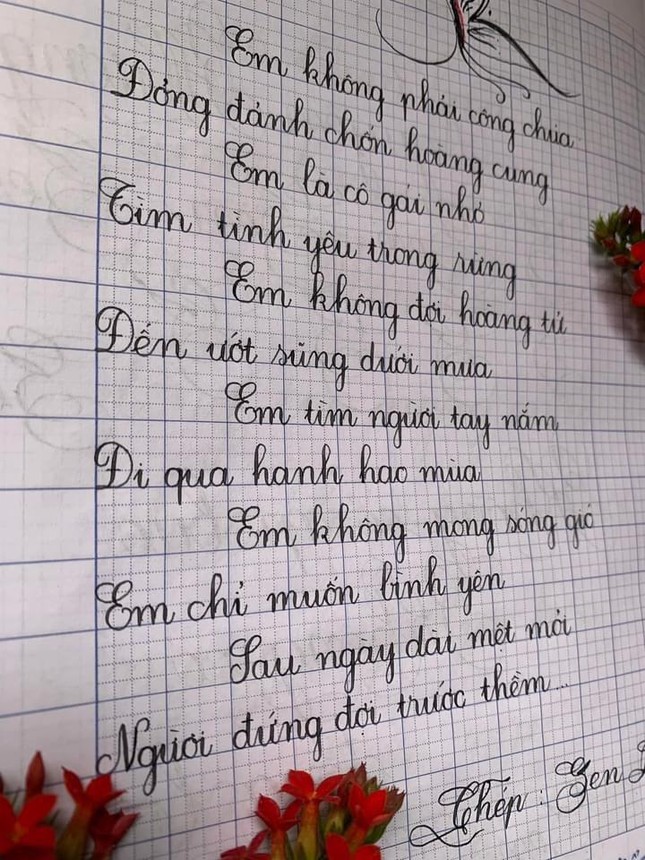 Em không phải công chúa
Đỏng đảnh chốn hoàng cung
Em là cô gái nhỏ
Tìm tình yêu trong rừng
Em không đợi hoàng tử
Đến ướt sũng dưới mưa
Em tìm người tay nắm
Đi qua hanh hao mùa
Em không mong sóng gió
Em chỉ muốn bình yên
Sau ngày dài mệt mỏi
Người đứng đợi trước thềm...
Chép: Gen